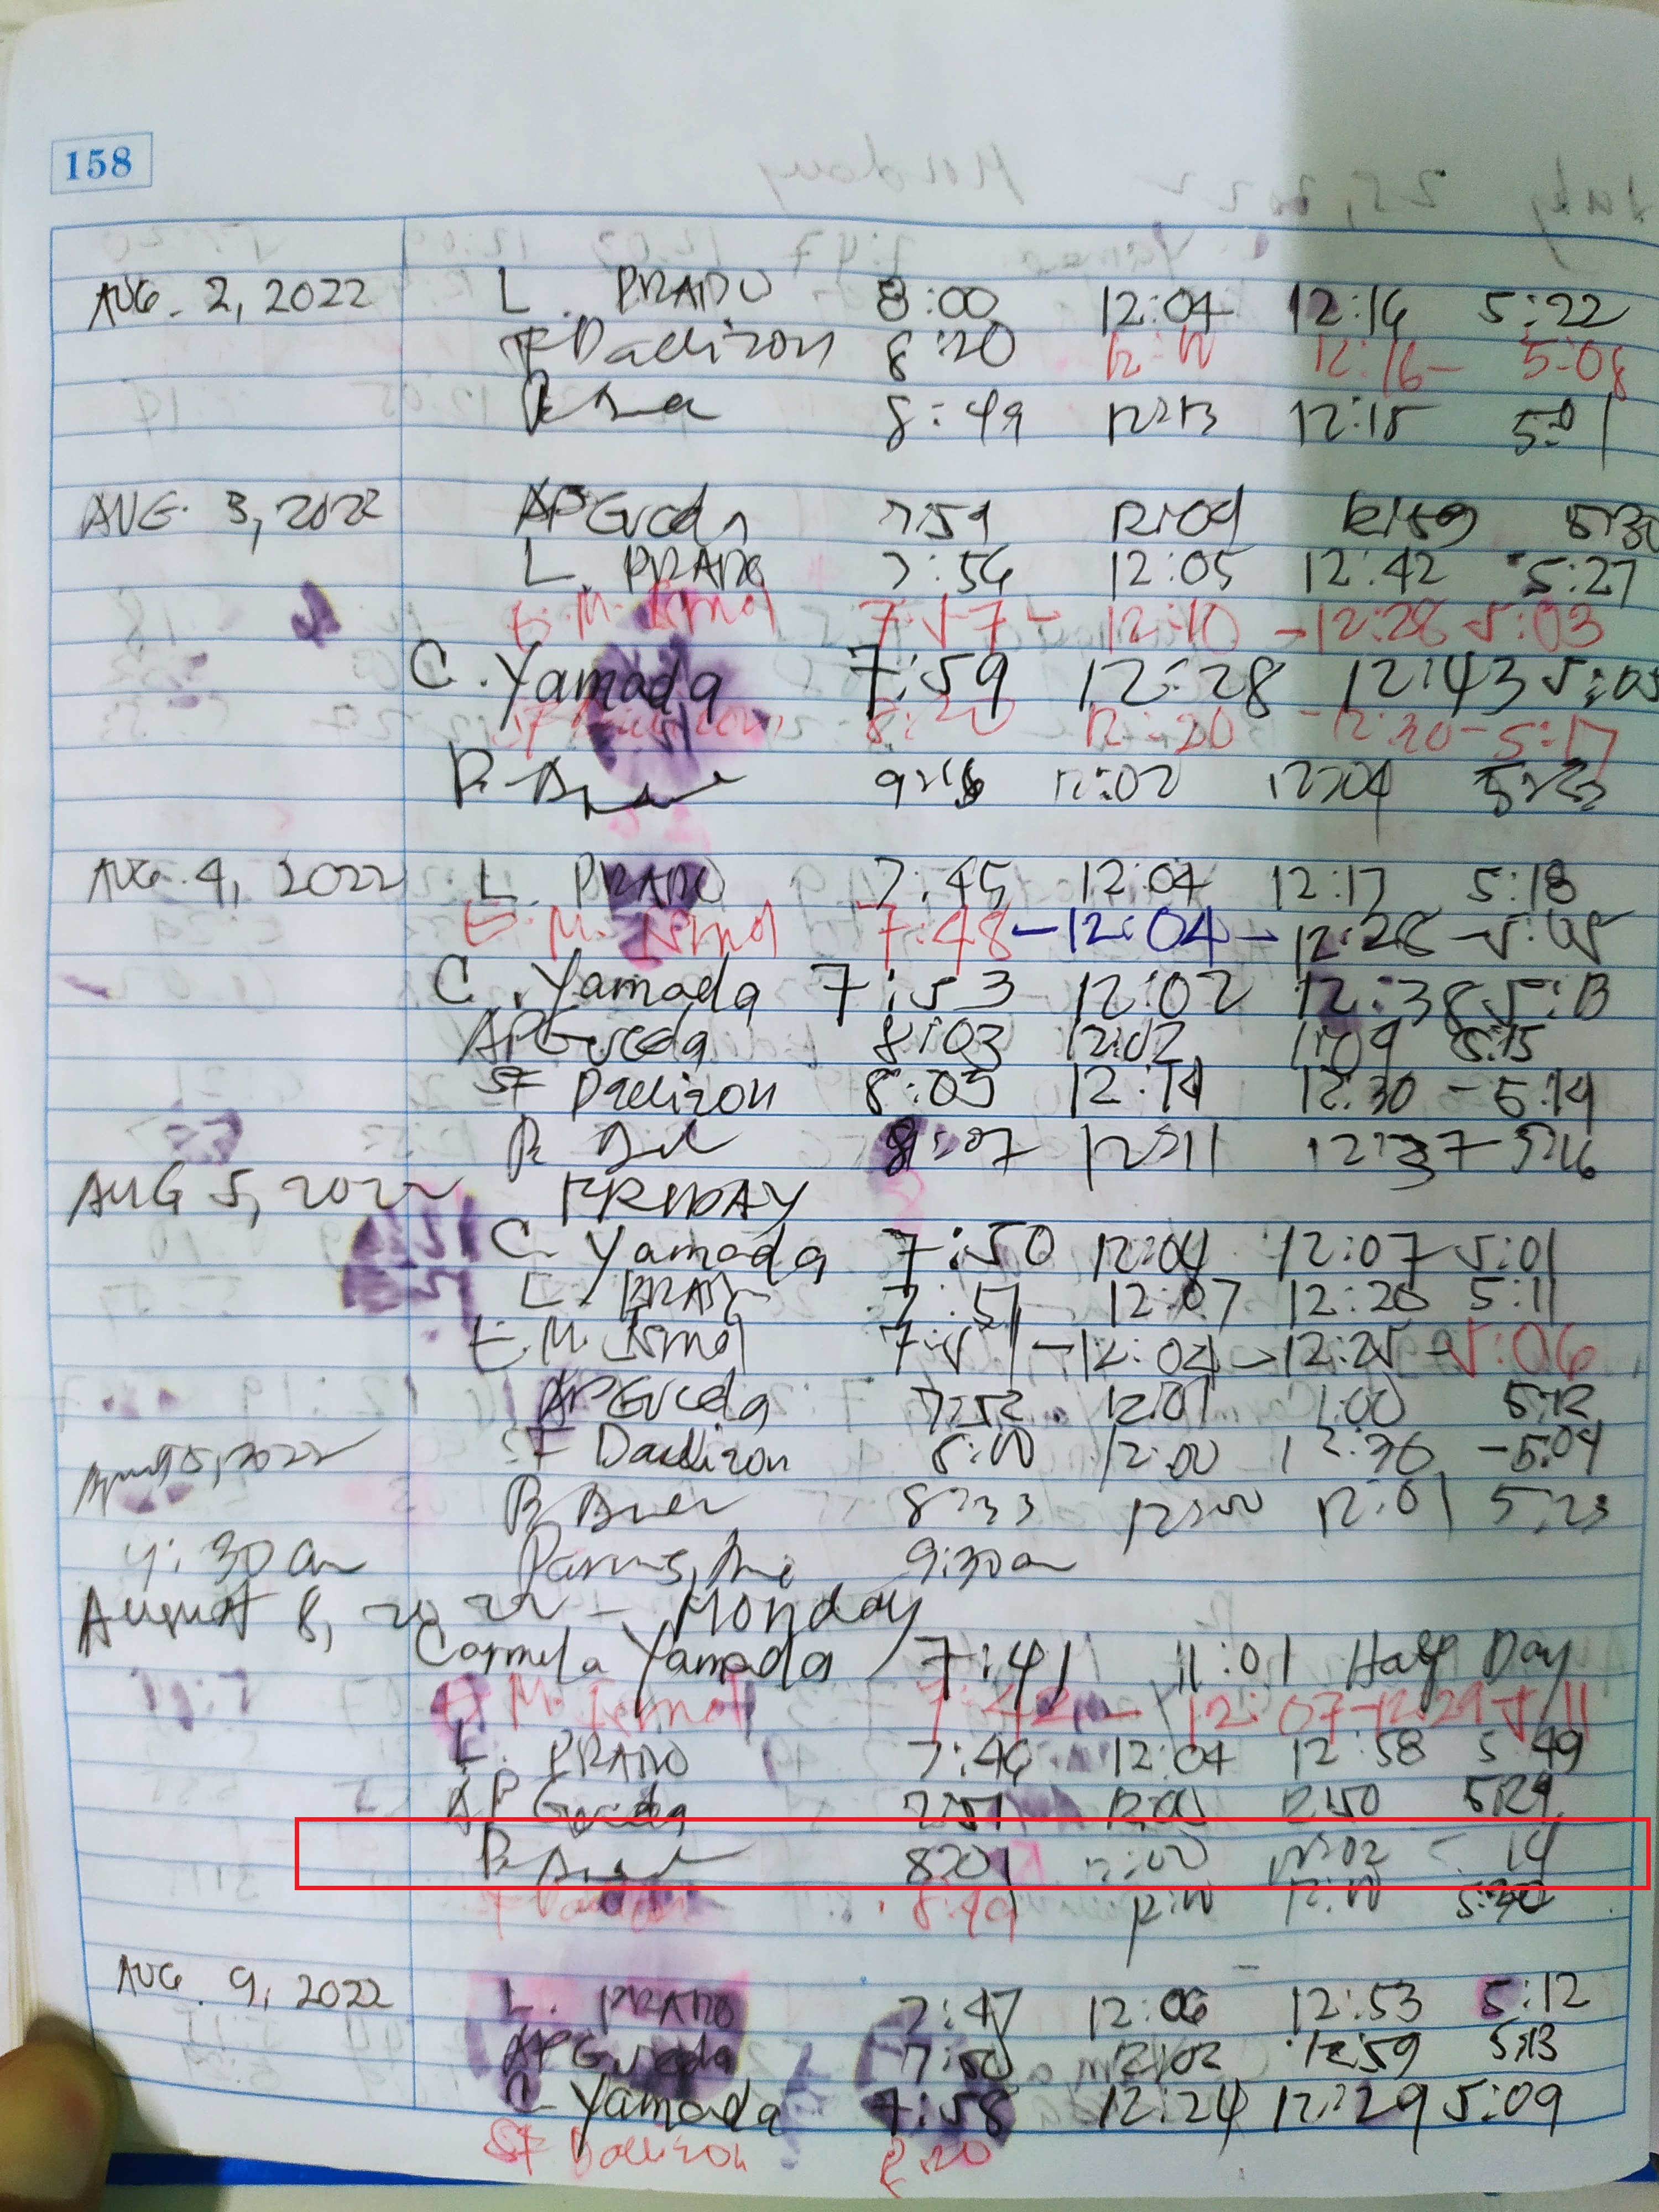 158
AUG. 2, 2022 L. PRADO 8:00 12:04 12:16 5:22
SF Daelizon 8:20 12:10 12:16- 5:08
8:49 12:13 12:15 5:01
AUG. 3, 2022 AP Gueda 7:59 12:09 12:59 5:30
L. PRADO 7:56 12:05 12:42 5:27
E.M. 7:57- 12:10 -12:28 5:03
C. Yamada 7:59 12:28 12:43 5:05
8:20 12:20 -12:30-5:17
12:02 12:04
AUG. 4, 2022 L. PRADO 7:45 12:04 12:17 5:18
E.M. 7:48-12:04-12:28-5:05
C. Yamada 7:53 12:02 12:38 5:13
AP Gueda 8:03 12:02 1:09 5:15
SF Daelizon 8:05 12:14 12:30 -5:14
8:07 12:11 12:37-5:16
AUG 5, 2022 FRIDAY
C. Yamada 7:50 12:04 12:07 5:01
L. PRADO 7:51 12:07 12:26 5:11
E.M. 7:51-12:04-12:25-5:06
AP Gueda 7:52 12:01 1:00 5:12
SF Daelizon 8:00 12:00 12:30 -5:04
8:33 12:00 12:01 5:23
9:30 am 9:30am
August 8, 2022 - Monday
Carmela Yamada 7:41 11:01 Half Day
E.M. 7:42- 12:07-12:29-5:11
L. PRADO 7:46 12:04 12:58 5:49
AP Gueda 7:51 12:01 12:50 5:29
8:01 12:00 12:02 14
8:49 12:10
AUG. 9, 2022 L. PRADO 7:47 12:06 12:53 5:12
AP Gueda 7:50 12:02 12:59 5:13
C. Yamada 7:58 12:24 12:29 5:09
SF Daelizon 8:20